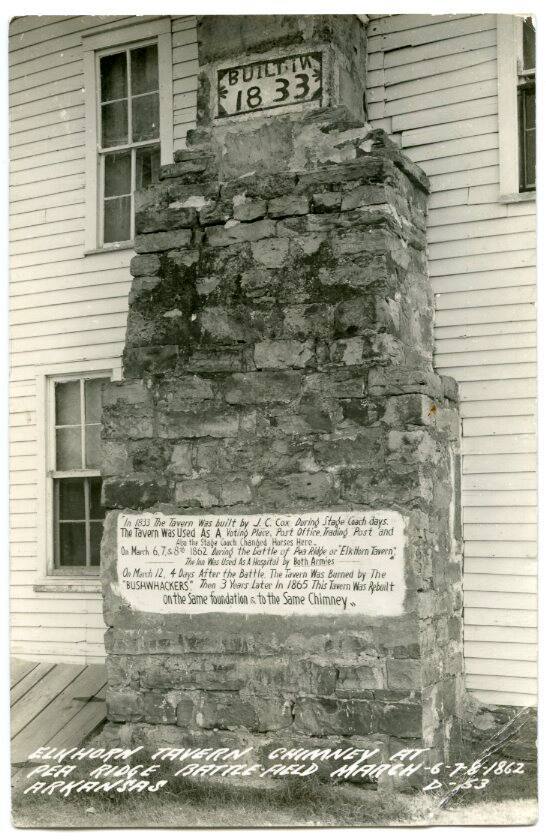 BUILT.IN
1833
"In 1833 The Tavern Was built by J. C. Cox During Stage Coach days.
The Tavern Was Used As A Voting Place, Post Office, Trading Post and
Also the Stage Coach Changed Horses Here.
On March 6, 7, & 8th 1862 During the battle of Pea Ridge or "Elk Horn Tavern",
The Inn Was Used As A Hospital by Both Armies
On March 12, 4 Days After the Battle, The Tavern Was Burned by The
"BUSHWHACKERS." Then 3 Years Later In 1865 This Tavern Was Rebuilt
on the Same foundation & to the Same Chimney"
ELKHORN TAVERN CHIMNEY AT
PEA RIDGE BATTLE-FIELD MARCH-6-7-8-1862
ARKANSAS D-53